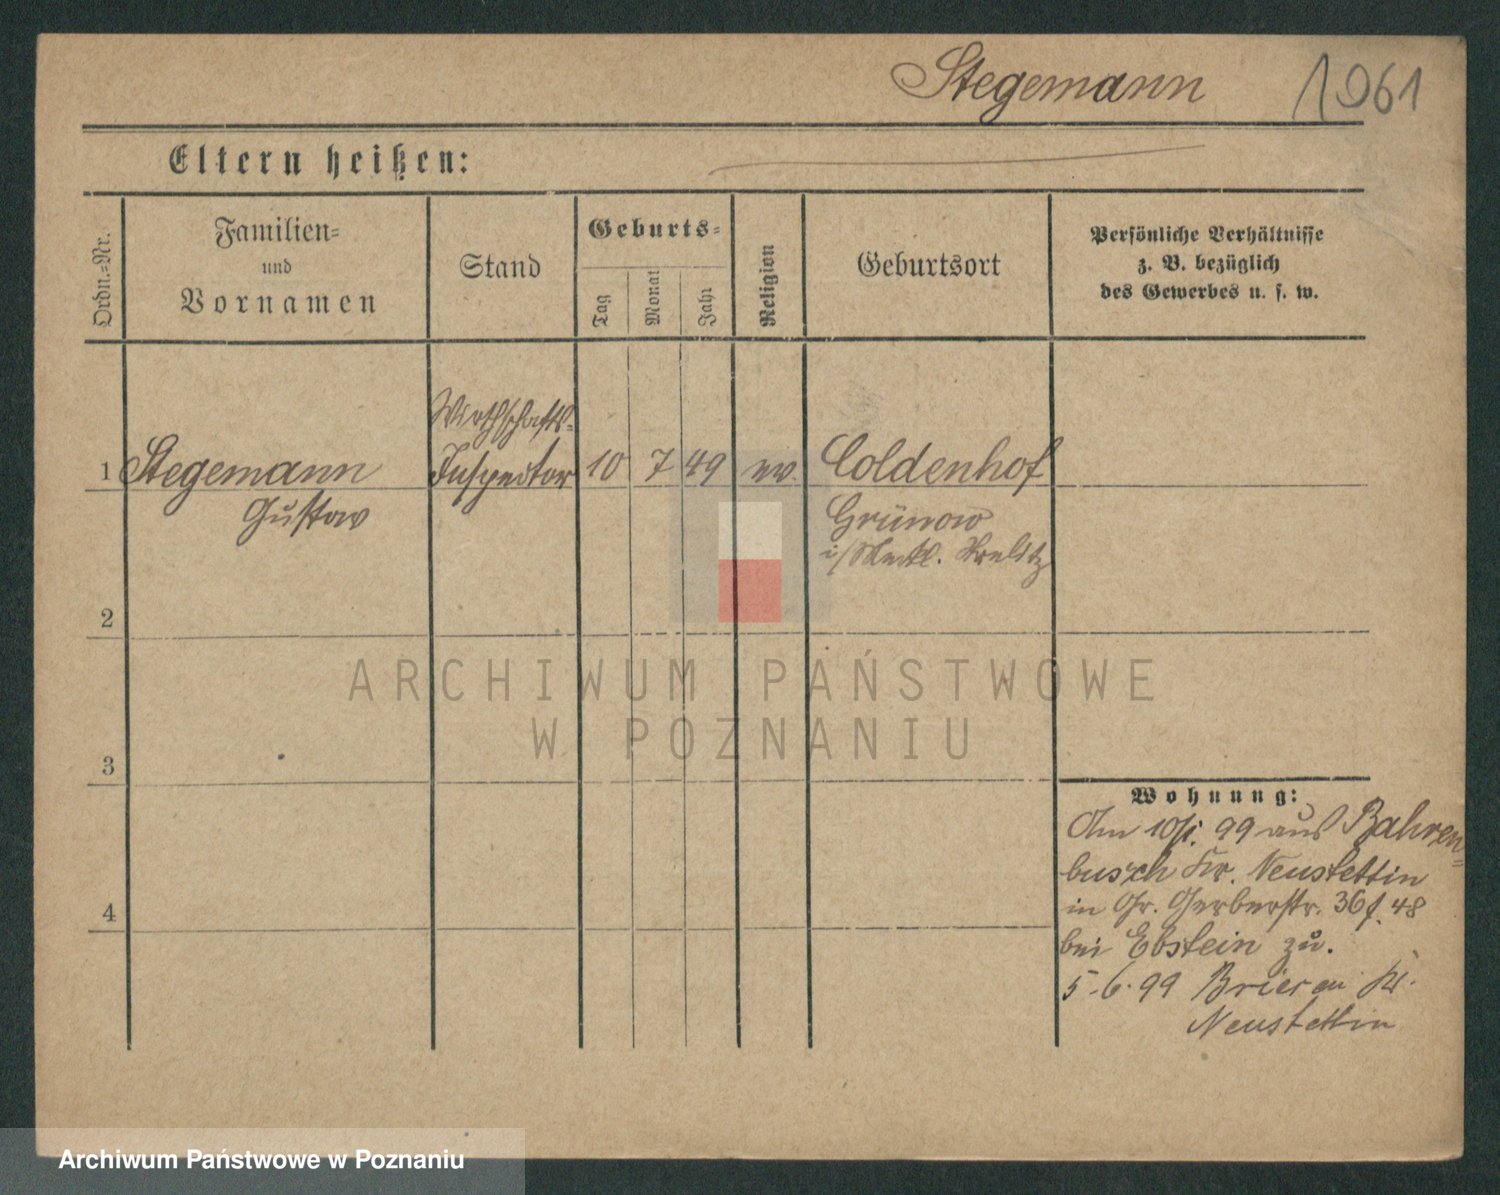 Stegemann 1961
Eltern heißen:
Ordn.=Nr.
Familien=
und
Vornamen
Stand
Geburts=
Tag
Monat
Jahr
Religion
Geburtsort
Persönliche Verhältnisse
z. B. bezüglich
des Gewerbes u. s. w.
Wirthschafts=
1 Stegemann Inspector 10 7 49 ev. Coldenhof
Gustav Grünow
i/Meckl. Strelitz
2
ARCHIWUM PAŃSTWOWE
W POZNANIU
3
Wohnung:
Am 10/1. 99 aus Bahren=
busch Kr. Neustettin
in Gr. Gerberstr. 36 f. 48
4
bei Ebstein zu.
5.6.99 Brieren Kr.
Neustettin
Archiwum Państwowe w Poznaniu